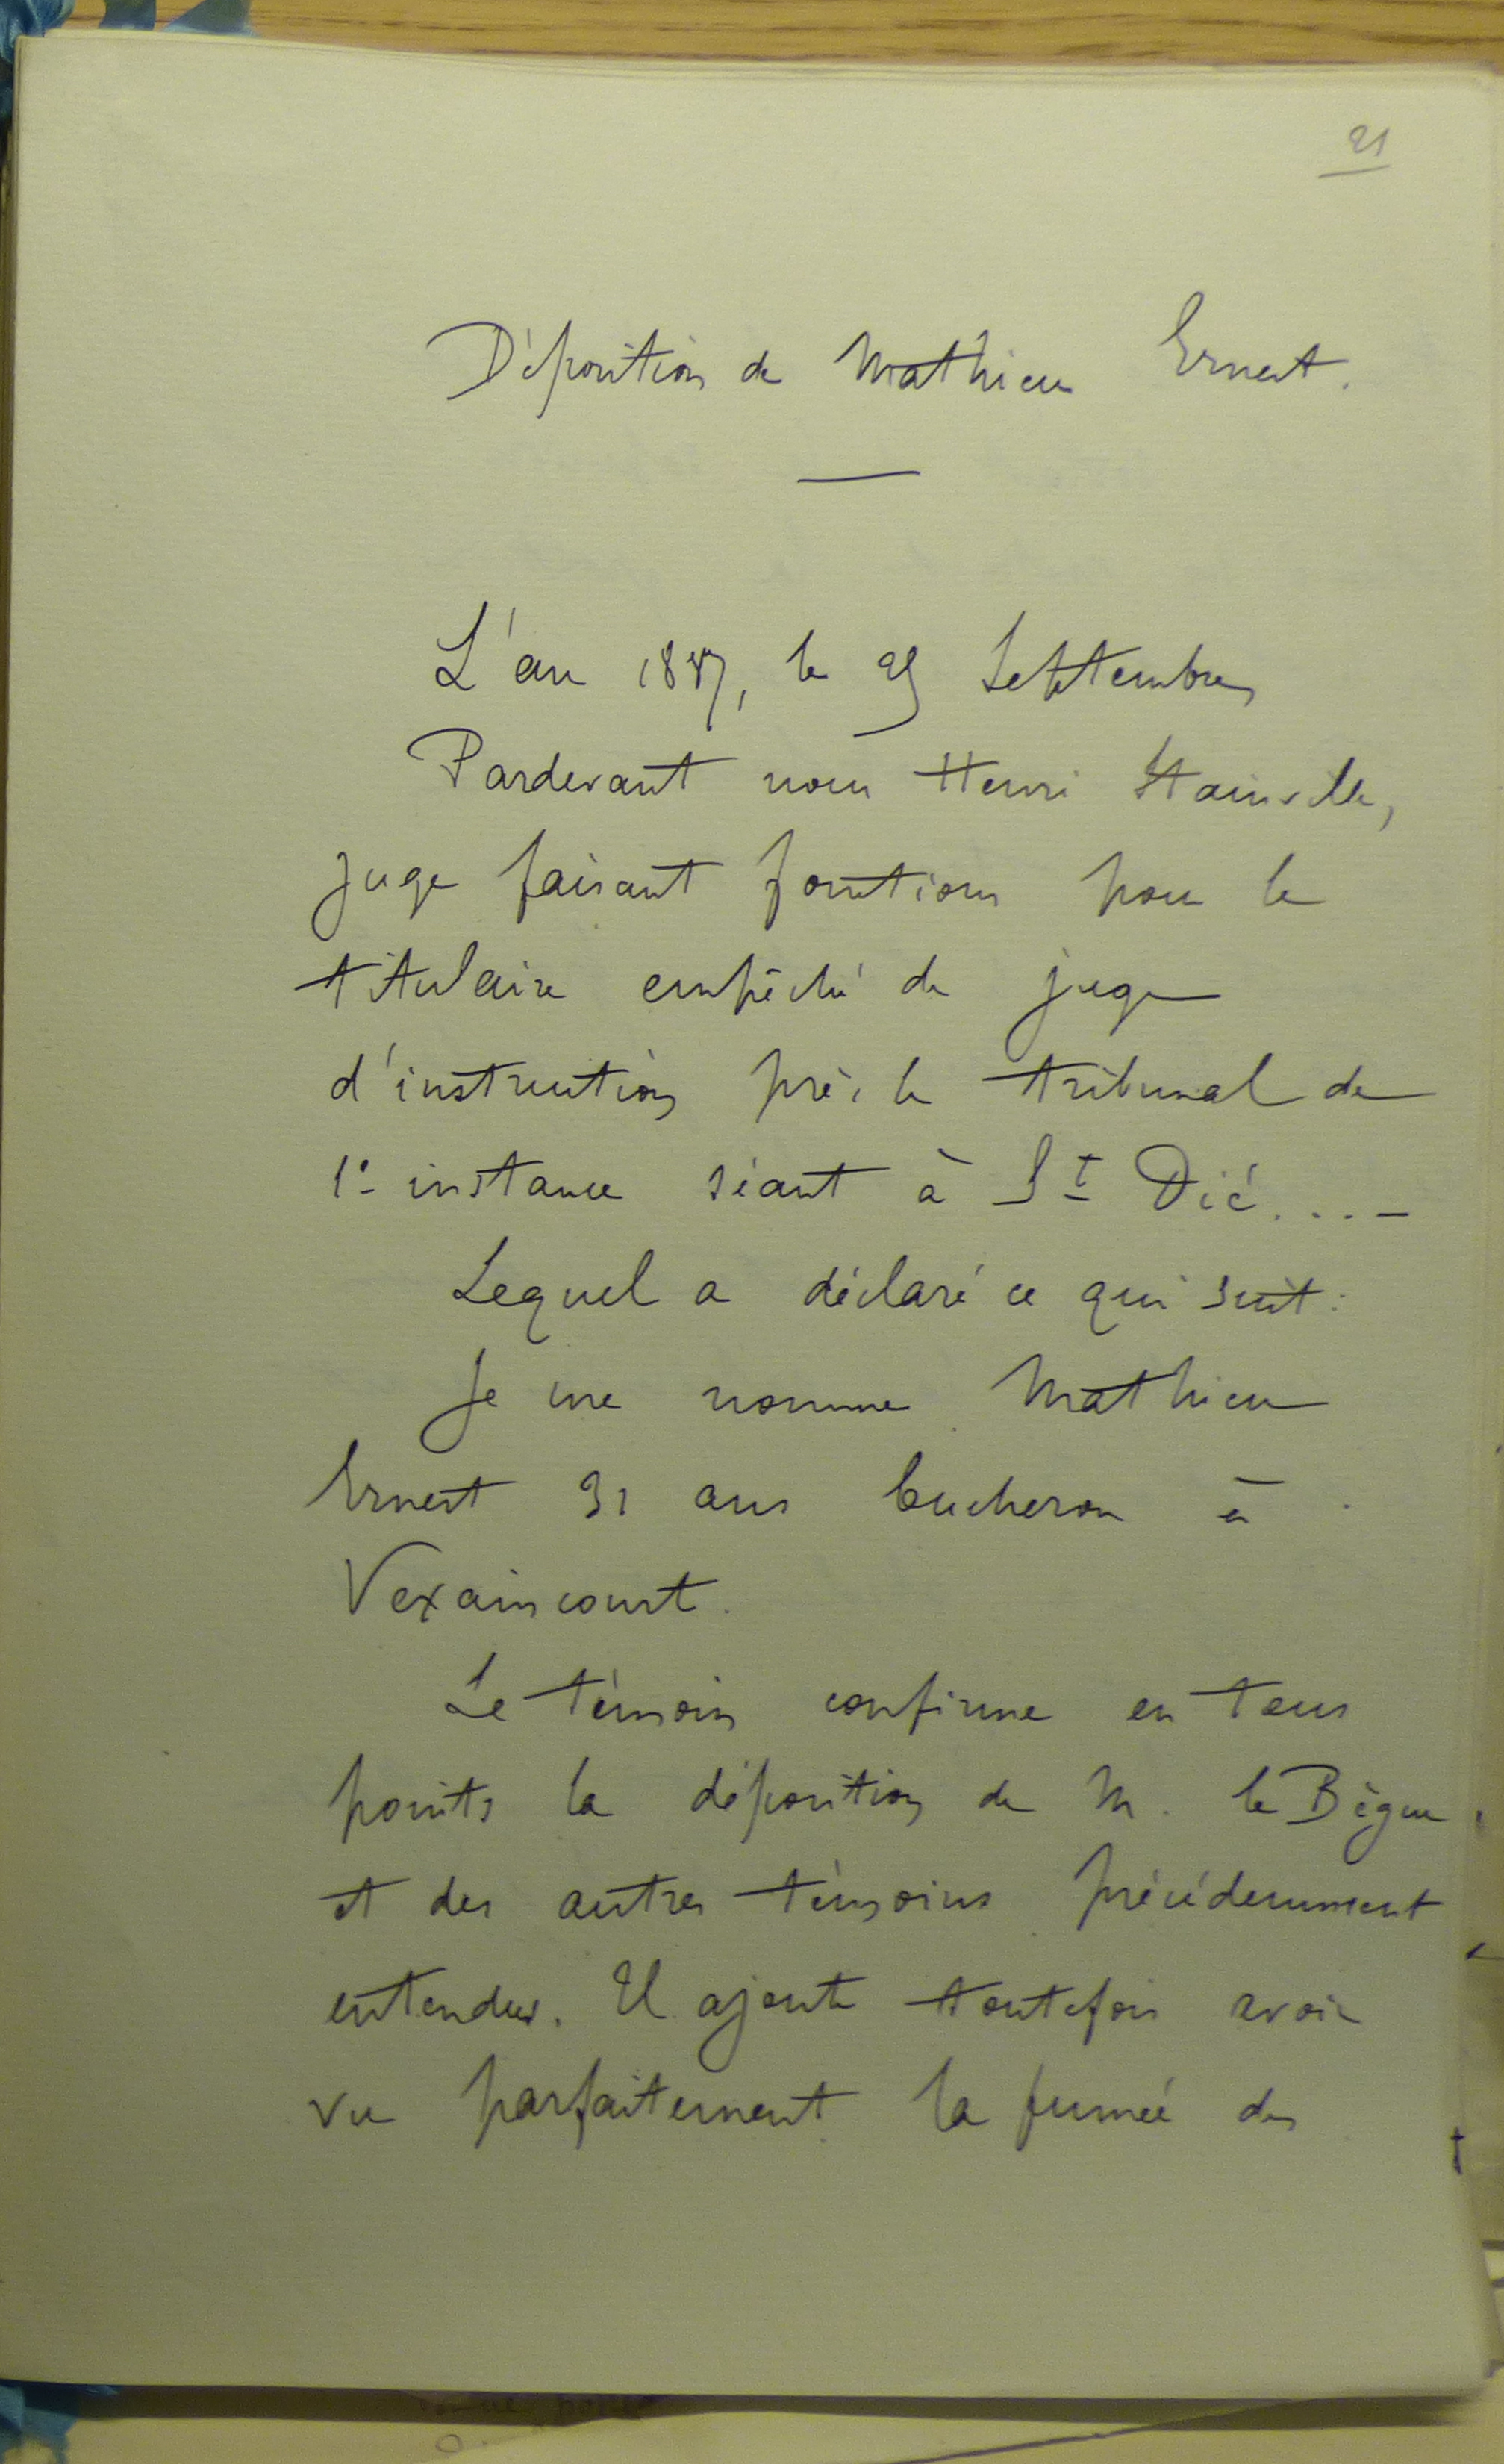 21
Déposition de Mathieu Ernest.
L'an 1887, le 25 Septembre,
Pardevant nous Henri Stainville,
juge faisant fonctions pour le
titulaire empêché de juge
d'instruction près le tribunal de
1e instance séant à St Dié....-
Lequel a déclaré ce qui suit:
Je me nomme Mathieu
Ernest 31 ans bucheron à
Vexaincourt.
Le témoin confirme en tous
points la déposition de M. le Bègue
et des autres témoins précédemment
entendus. Il ajoute toutefois avoir
vu parfaitement la fumée des